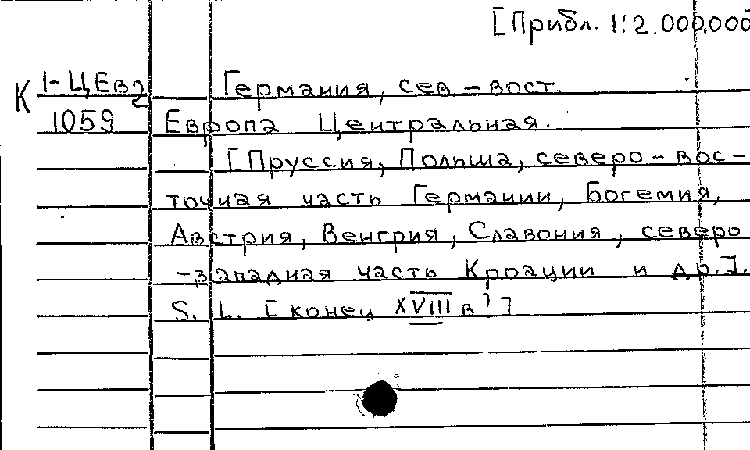 [Прибл. 1:2.000.000
К 1-ЦЕв2 Германия, сев-вост.
1059 Европа Центральная.
[Пруссия, Польша, северо-вос-
точная часть Германии, Богемия,
Австрия, Венгрия, Славония, северо
-западная часть Кроации и др.].
S. L. [конец XVIII в?]